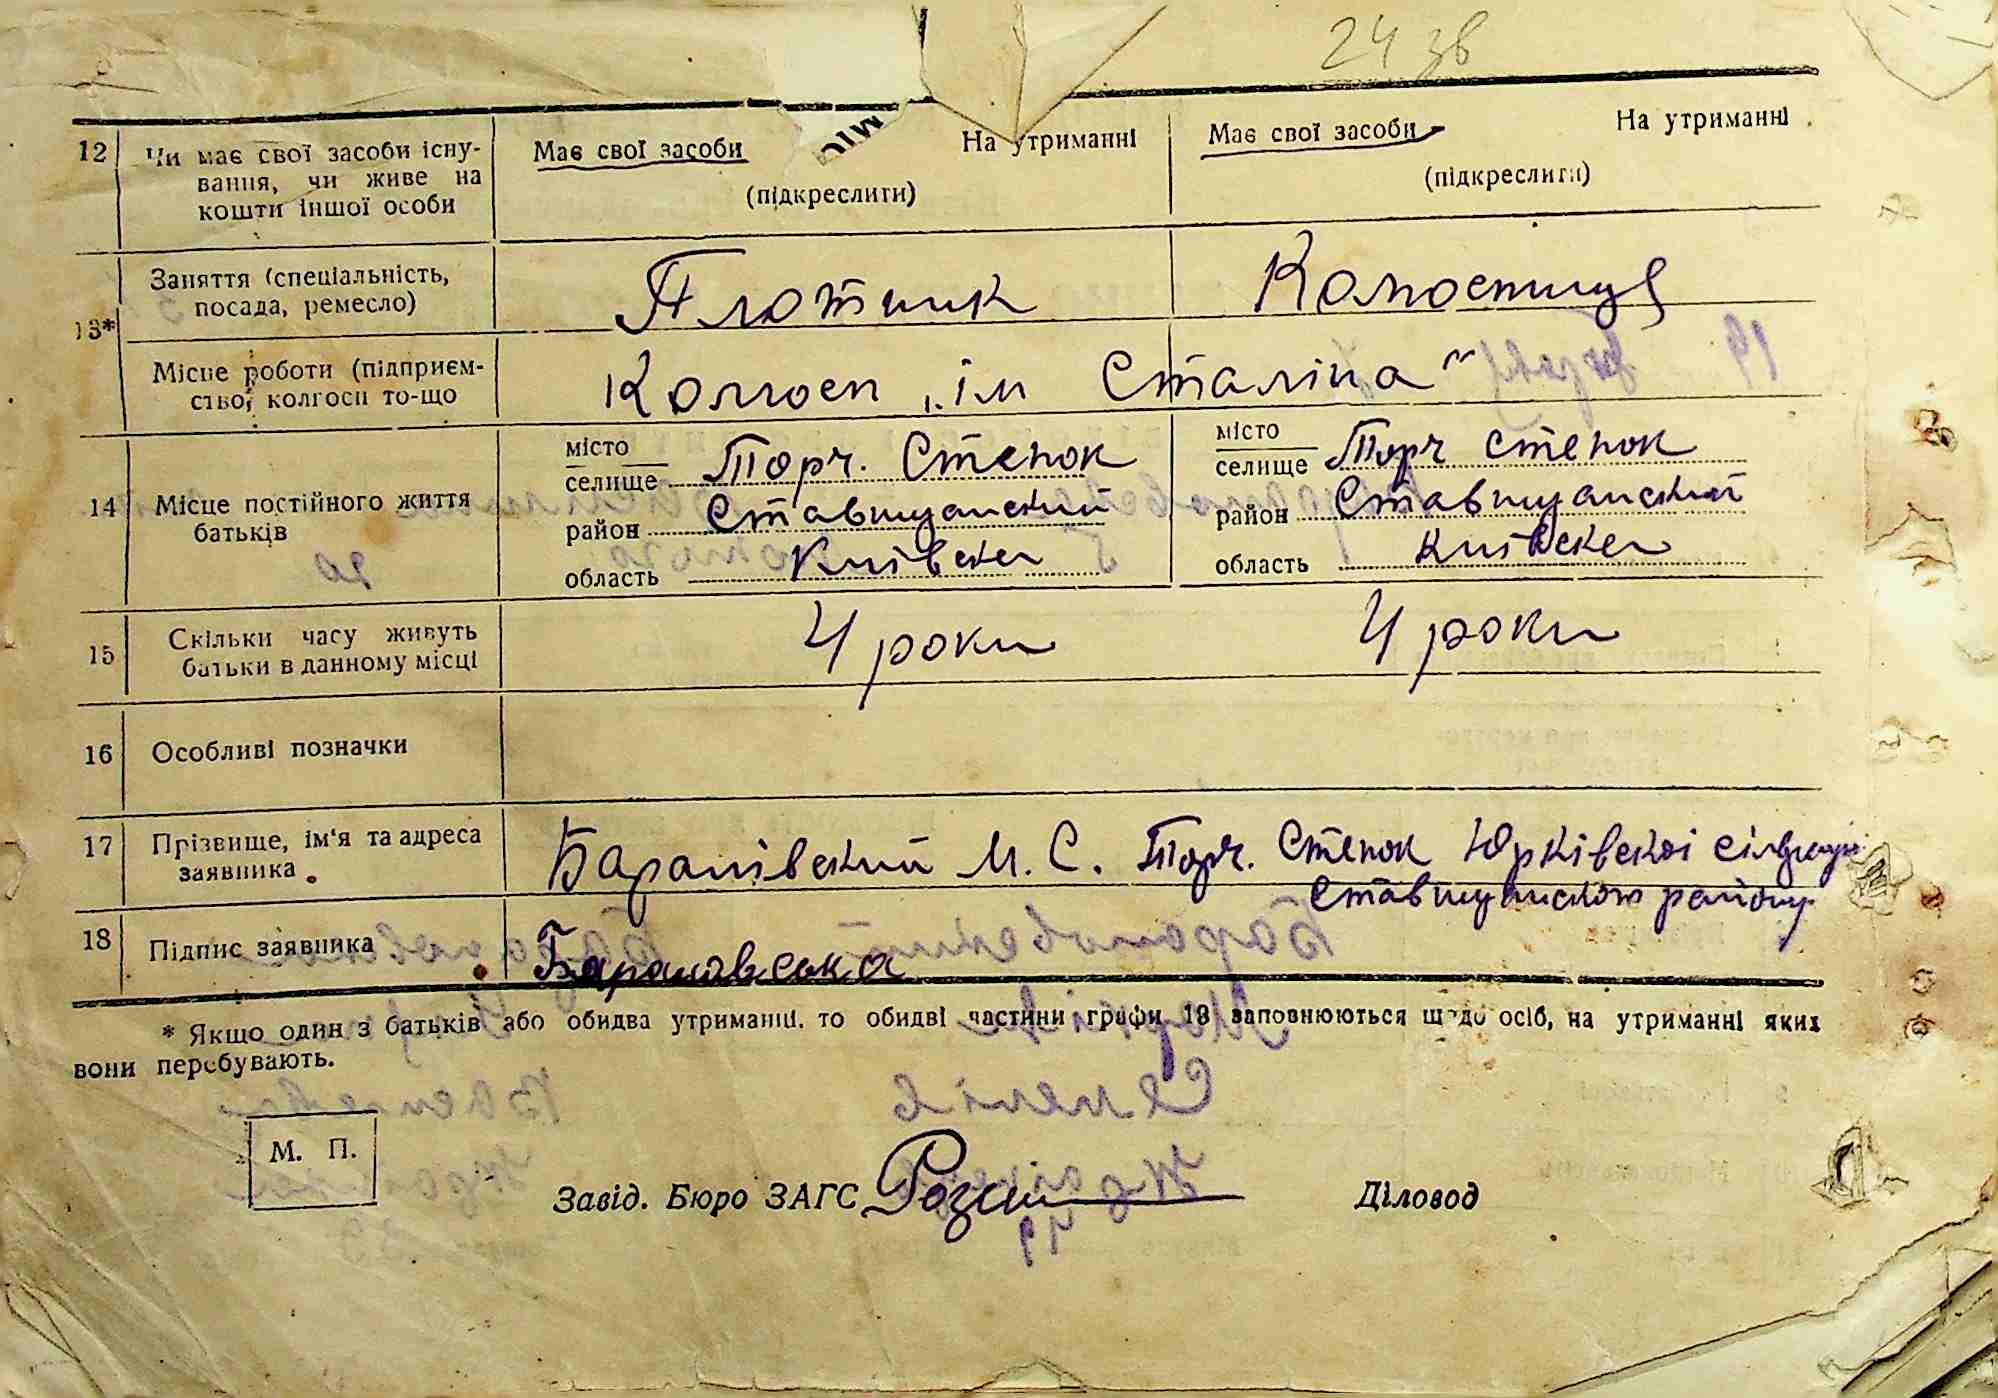 24 зв
12 Чи має свої засоби існу- Має свої засоби На утриманні Має свої засоби На утриманні
вання, чи живе на (підкреслити) (підкреслити)
кошти іншої особи
13* Заняття (спеціальність, Плотник Колгоспниця
посада, ремесло)
Місце роботи (підприєм- Колгосп „ім Сталіна"
ство, колгосп то-що
14 Місце постійного життя місто селище Торч. Степок місто селище Торч Степок
батьків район Ставищанский район Ставищанский
область Київська область Київська
15 Скільки часу живуть 4 роки 4 роки
батьки в данному місці
16 Особливі позначки
17 Прізвище, ім'я та адреса Баранівский М. С. Торч. Степок Юрківскоі сілради
заявника Ставищанского району
18 Підпис заявника Барановська
* Якщо один з батьків або обидва утриманці, то обидві частини графи 13 заповнюються щодо осіб, на утриманні яких
вони перебувають.
М. П.
Завід. Бюро ЗАГС Діловод